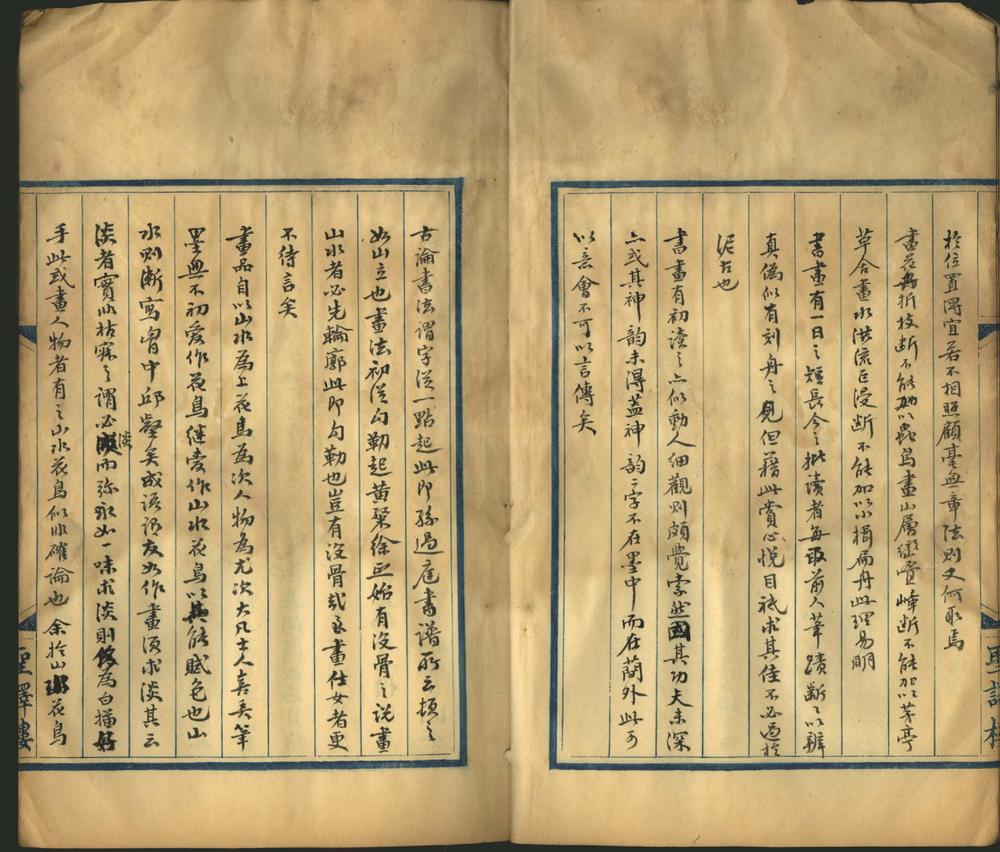 於位置得宜若不相照顧毫無章法則又何取焉
畫花折枝斷不能加以蟲鳥畫山層巒疊嶂斷不能加以茅亭
草舍畫水洪流巨浸斷不能加以小橋扁舟此理易明
書畫有一日之短長今之批讀者每取前人筆蹟斷之以辨
真偽似有刻舟之見但藉此賞心悅目祇求其佳不必過於
泥古也
書畫有初讀之亦似動人細觀則頗覺索然因其功夫未深
亦或其神韻未得蓋神韻二字不在墨中而在蘭外此可
以意會不可以言傳矣
古論書法謂字從一點起此即孫過庭書譜所云頓之
如山立也畫法初從勾勒起黃筌徐熙始有沒骨之說畫
山水者必先輪廓此即勾勒也豈有沒骨哉至畫仕女者更
不待言矣
畫品自以山水為上花鳥為次人物為尤次大凡士人喜弄筆
墨無不初愛作花鳥繼愛作山水花鳥以其能賦色也山
水則漸寫胸中邱壑矣成語謂友如作畫須求淡其云
淡者實非枯寂之謂必淡而弥永如一味求淡則為白描好
手此或畫人物者有之山水花鳥似非確論也余於山水花鳥
聖譯樓